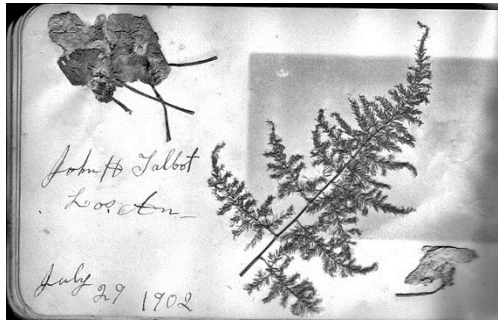 John H Talbot
Los An_
July 29 1902